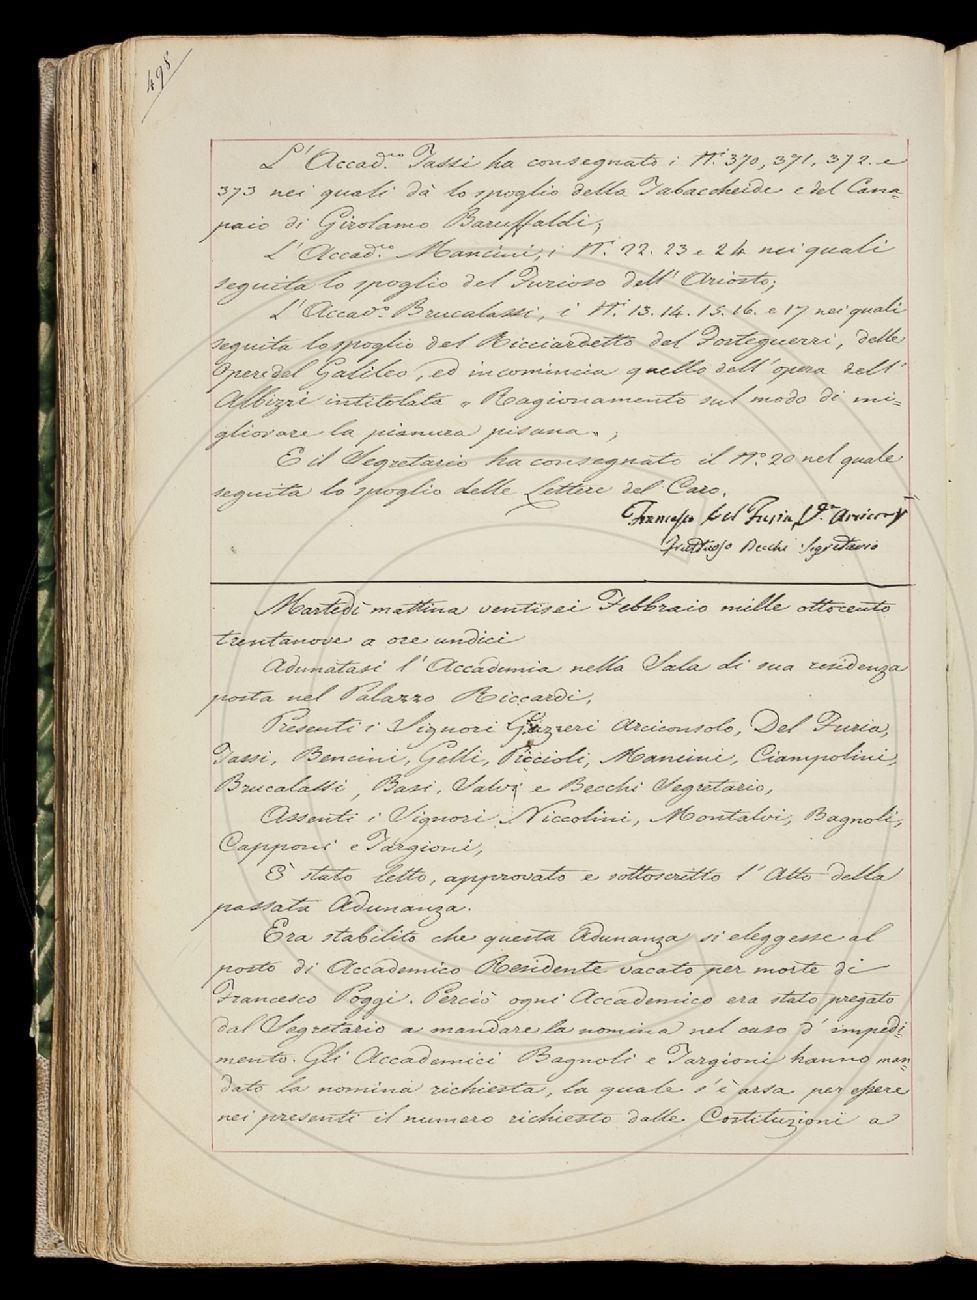 498
L'Accad.co Tassi ha consegnato i N.i 370, 371, 372. e
373 nei quali dà lo spoglio della Tabaccheide e del Cana=
paio di Girolamo Baruffaldi;
L'Accad.co Mancini, i N.i 22. 23 e 24 nei quali
seguita lo spoglio del Furioso dell' Ariosto;
L'Accad.o Brucalassi, i N.i 13. 14. 15. 16. e 17 nei quali
seguita lo spoglio del Ricciardetto del Forteguerri, delle
Opere del Galileo, ed incomincia quello dell' opera dell'
Albizzi intitolata „ Ragionamento sul modo di mi=
gliorare la pianura pisana. ;
E il Segretario ha consegnato il N.o 20 nel quale
seguita lo spoglio delle Lettere del Caro.
Francesco Del Furia
Fruttuoso Becchi Segretario
Martedì mattina ventisei Febbraio mille ottocento
trentanove a ore undici
Adunatasi l'Accademia nella Sala di sua residenza
posta nel Palazzo Riccardi,
Presenti i Signori Gazzeri Arciconsolo, Del Furia,
Tassi, Bencini, Gelli, Piccioli, Mancini, Ciampolini,
Brucalassi, Basi, Salvi e Becchi Segretario,
Assenti i Signori Niccolini, Montalvi, Bagnoli,
Capponi e Targioni,
È stato letto, approvato e sottoscritto l'Atto della
passata Adunanza.
Era stabilito che questa Adunanza si eleggesse al
posto di Accademico Residente vacato per morte di
Francesco Poggi. Perciò ogni Accademico era stato pregato
dal Segretario a mandare la nomina nel caso d'impedi=
mento. Gli Accademici Bagnoli e Targioni hanno man=
dato la nomina richiesta, la quale s'è arsa per essere
nei presenti il numero richiesto dalle Costituzioni a